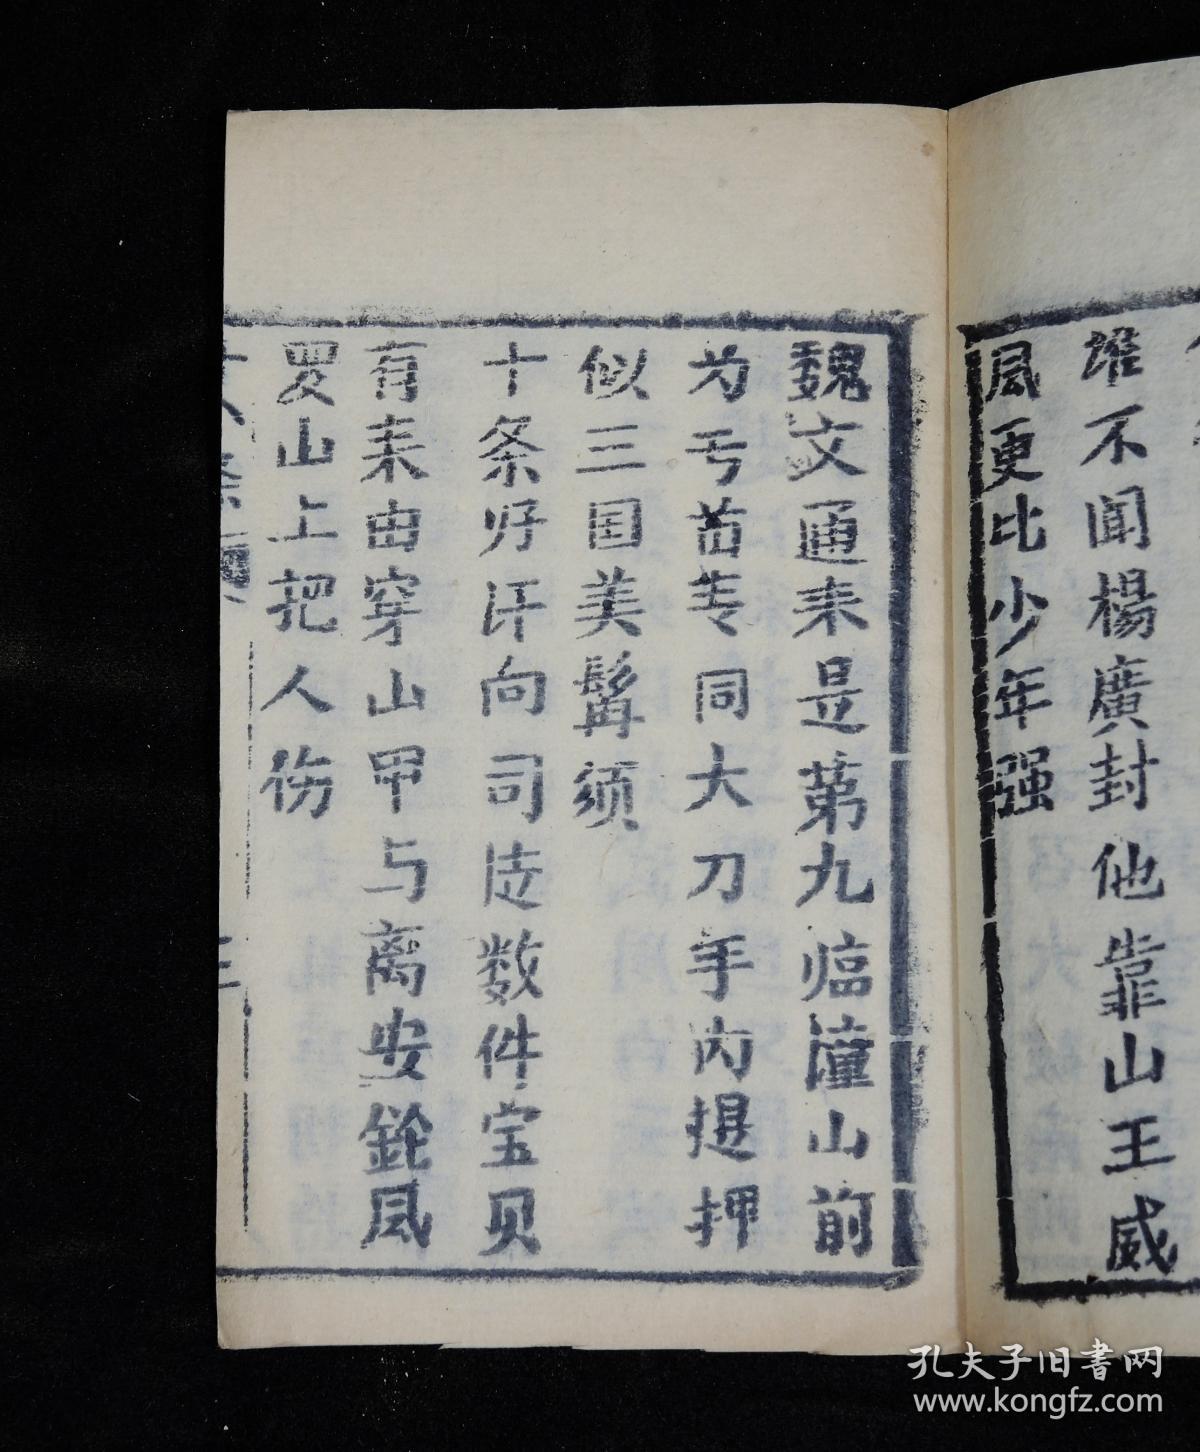 谁不闻楊廣封他靠山王威
凮更比少年强
魏文通来是第九临潼山前
为亏苗专同大刀手内提押
似三国美髯须
十条好汗向司徒数件宝贝
有来由穿山甲与离安鈴凤
罗山上把人伤
十八条
三
孔夫子旧書网
www.kongfz.com